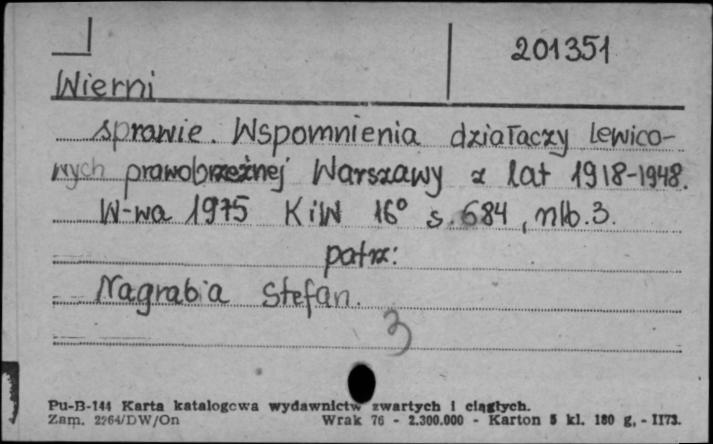 201351
Wierni
sprawie. Wspomnienia działaczy lewico-
wych prawobrzeżnej Warszawy z lat 1918-1948.
W-wa 1975 KiW 16° s. 684, nlb. 3.
patrz:
Nagrabia Stefan.
3
Pu-B-144 Karta katalogowa wydawnictw zwartych i ciągłych.
Zam. 2264/DW/On Wrak 76 - 2.300.000 - Karton 5 kl. 180 g, - II73.